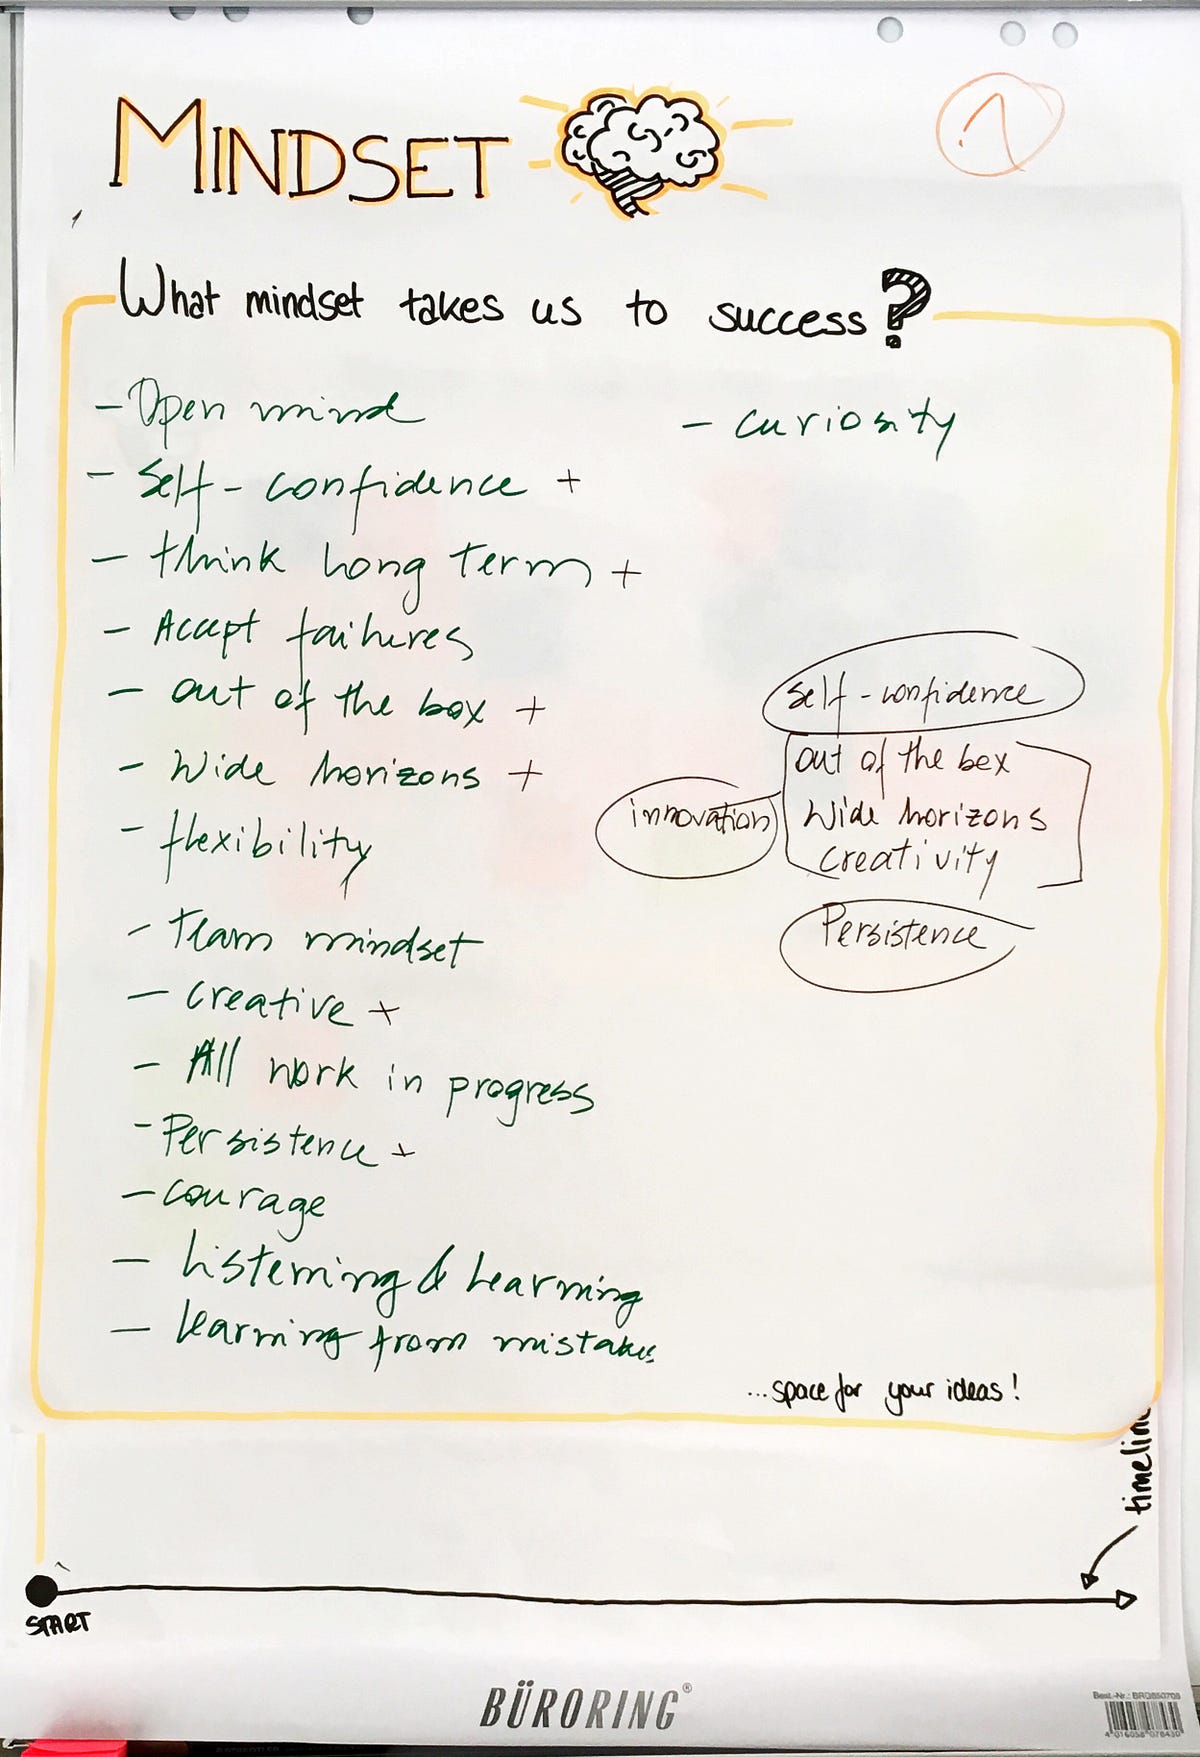 MINDSET
1
What mindset takes us to success?
- Open mind
- Self-confidence +
- think Long term +
- Accept failures
- out of the box +
- Wide horizons +
- flexibility
- Team mindset
- creative +
- All work in progress
- Persistence +
- courage
- Listening & Learning
- Learning from mistakes
- curiosity
Self-confidence
out of the box
innovation
Wide horizons
creativity
Persistence
...space for your ideas!
timeline
START
BÜRORING®
Best.-Nr.: BRG850709